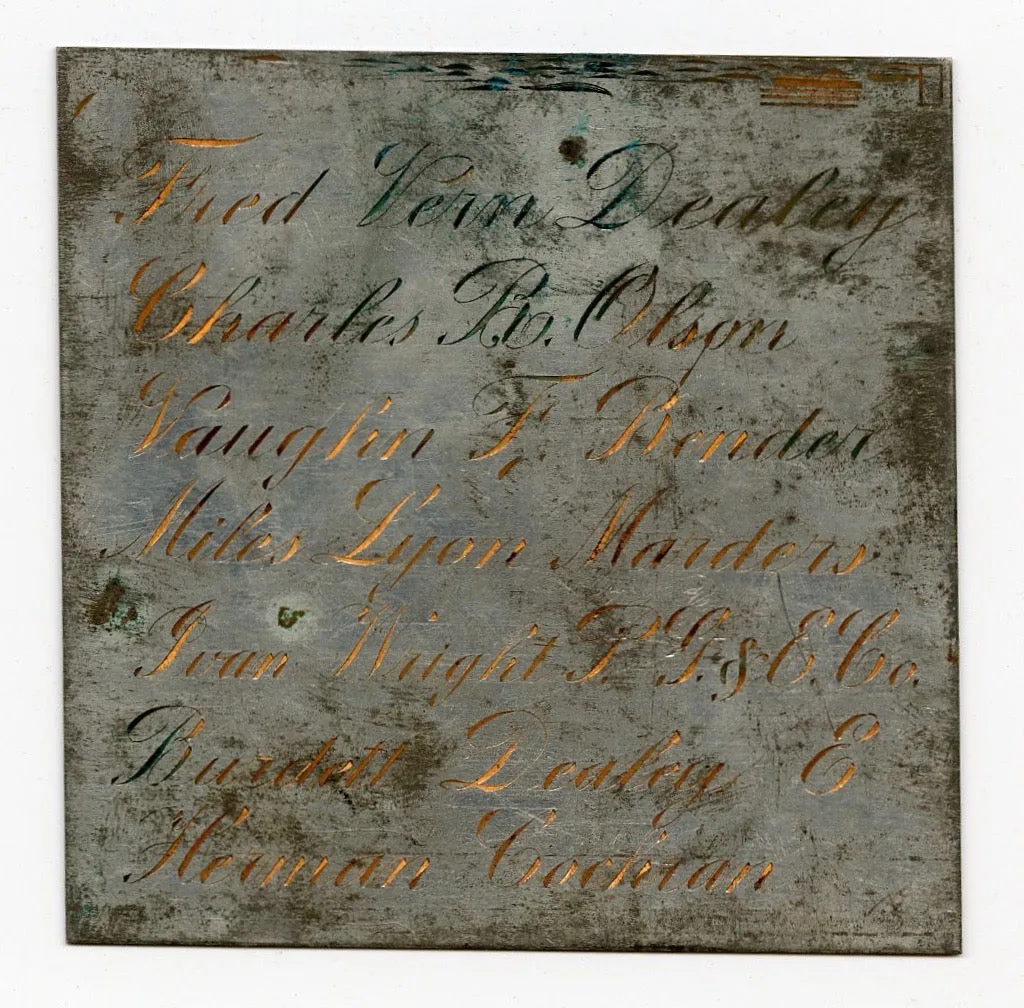 Fred Vern Dealey
Charles R. Olson
Vaughn F. Bender
Miles Lyon Marders
Ivan Wright P. G. & E. Co.
Burdett Dealey E
Herman Cochran